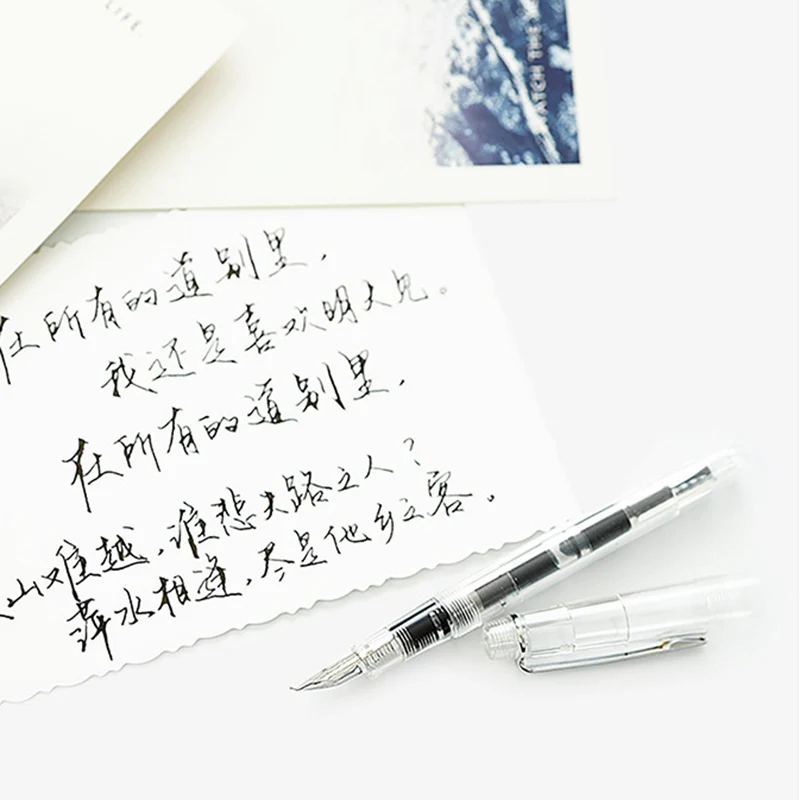 LIFE.
ATCH THE
在所有的道别里,
我还是喜欢明天见。
在所有的道别里,
山难越,谁悲失路之人?
萍水相逢,尽是他乡之客。